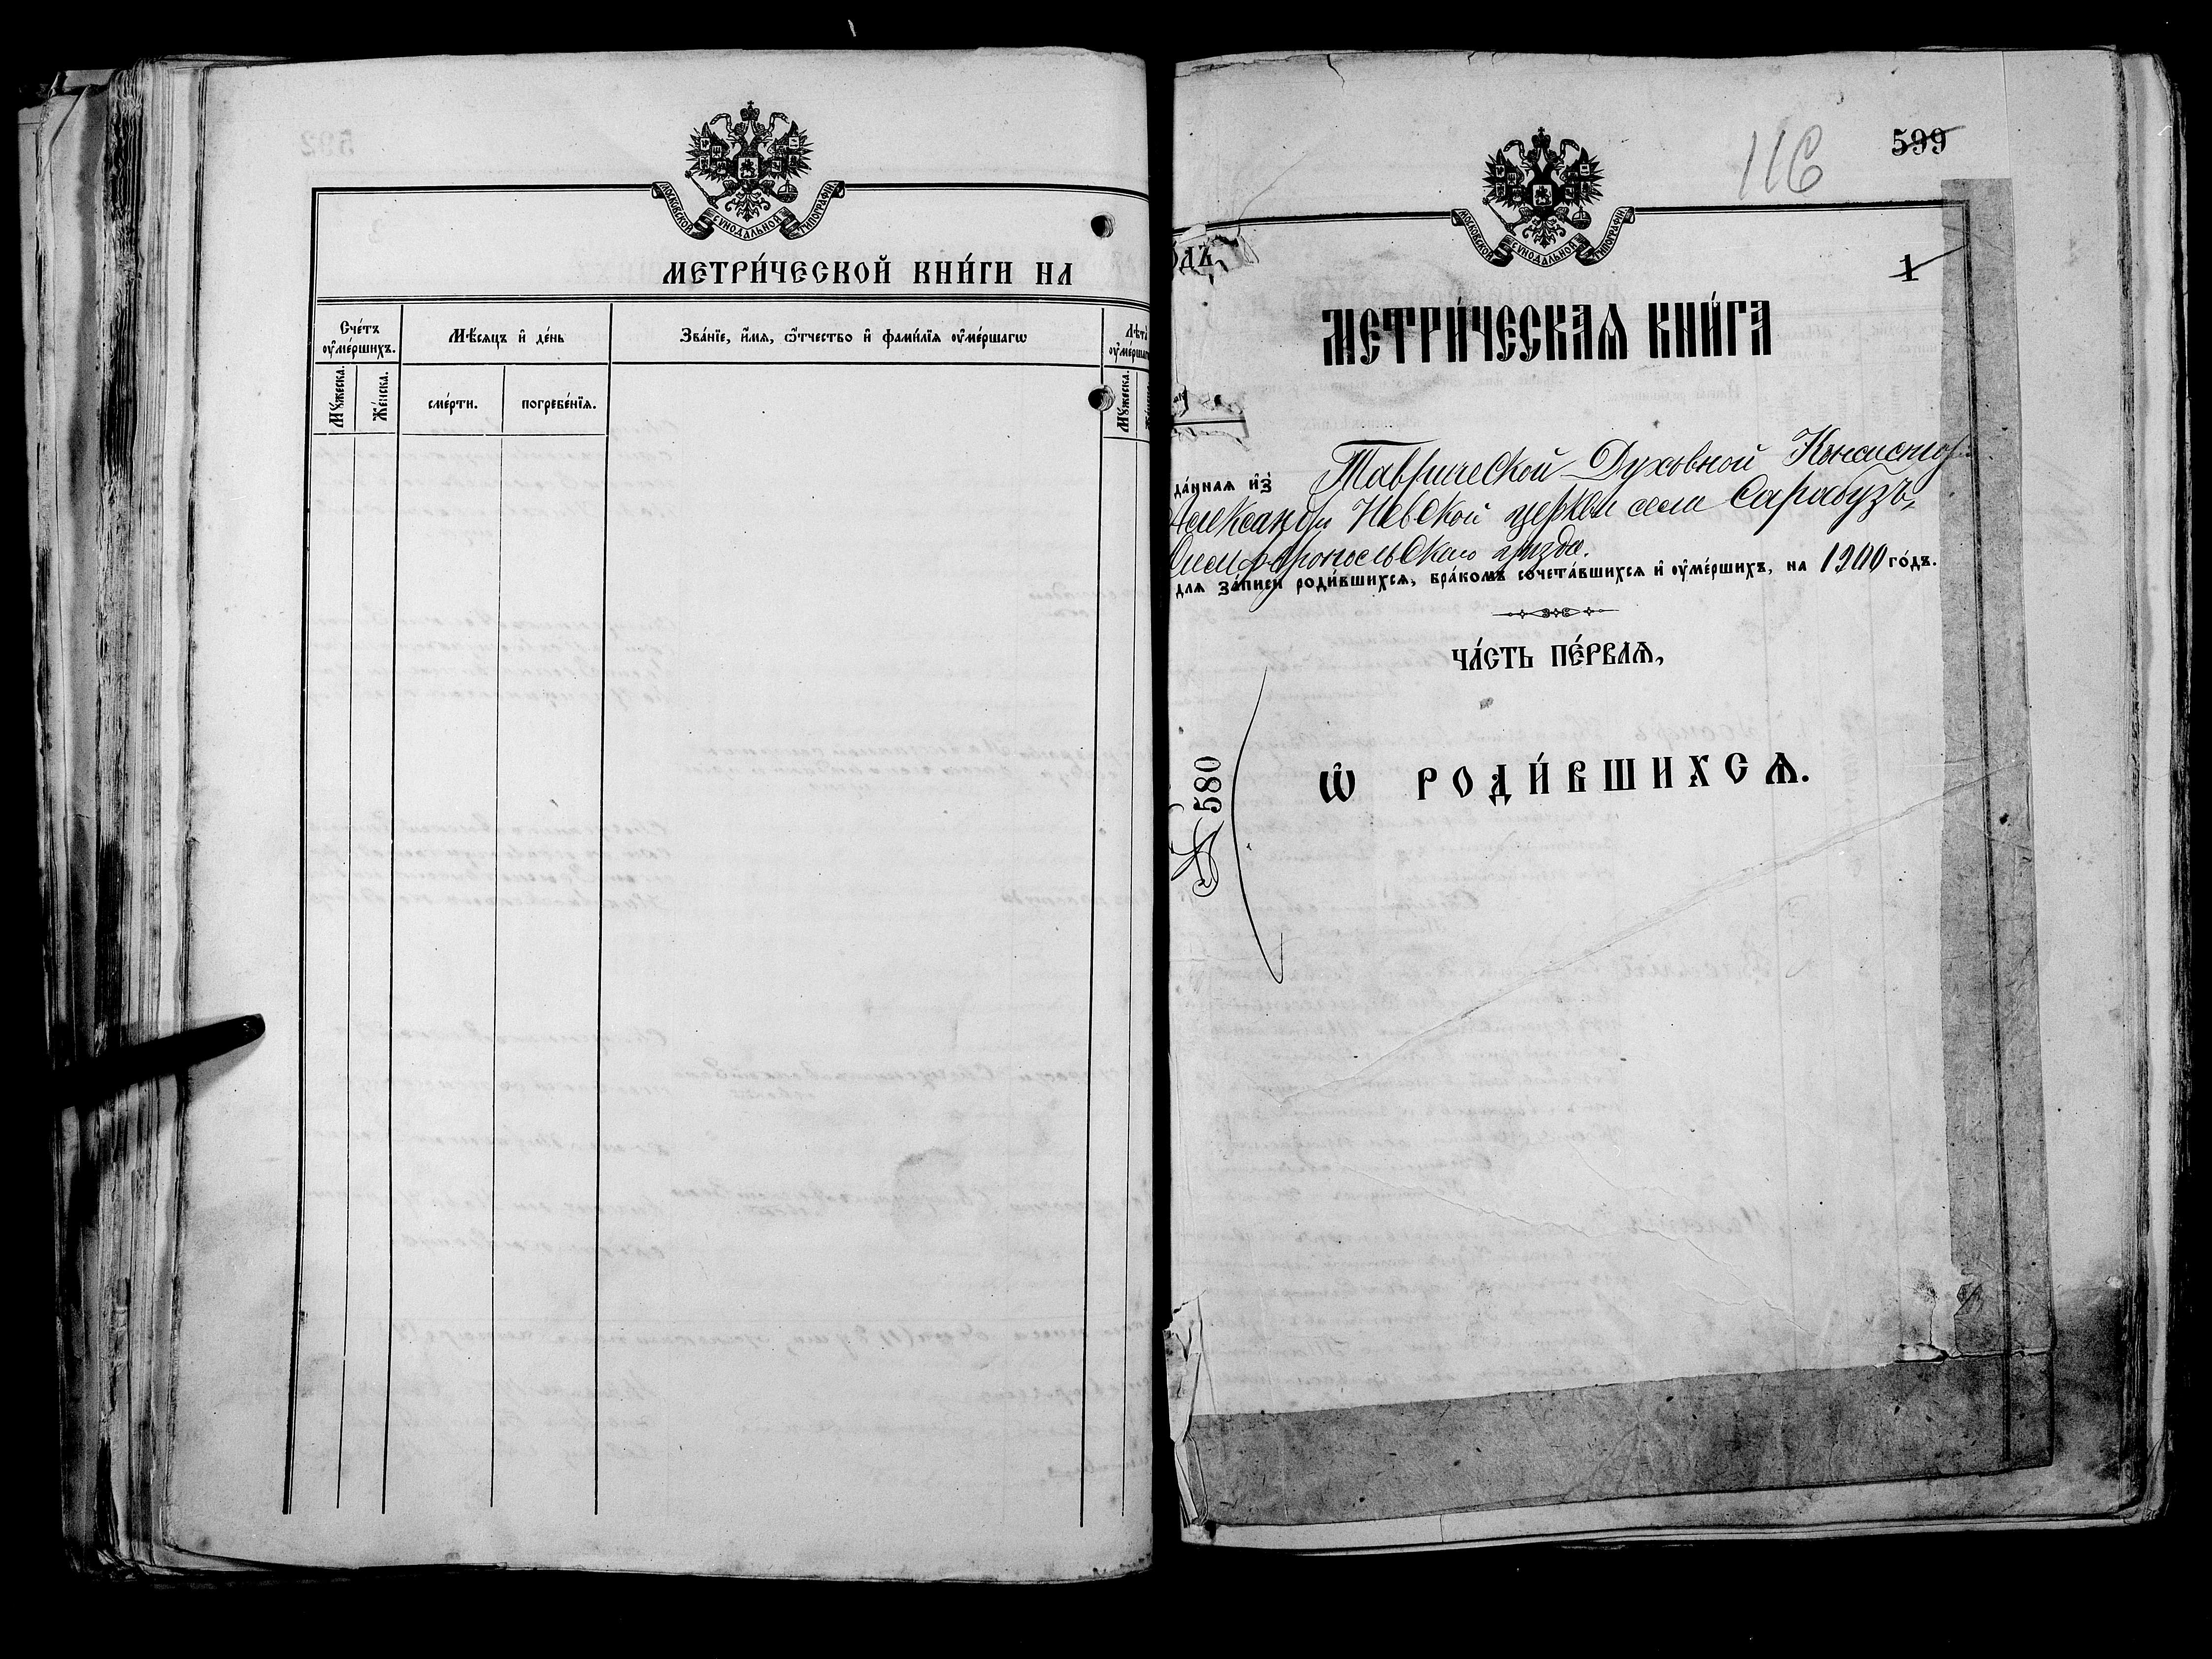 МОСКОВСКОЙ СѴНОДАЛЬНОЙ ТИПОГРАФІИ.
МЕТРИ́ЧЕСКОЙ КНИ́ГИ НА
Сче́тъ ᲂу҆ме́ршихъ.
Мѣ́сяцъ и҆ де́нь
Зва́нїе, и҆́мя, ѻ҆́тчество и҆ фами́лїя ᲂу҆ме́ршагѡ
Лѣта̀ ᲂу҆ме́ршаг
Мꙋ́жеска.
Же́нска.
сме́рти.
погребе́нїя.
Мꙋ́жеска.
599
116
МОСКОВСКОЙ СѴНОДАЛЬНОЙ ТИПОГРАФІИ.
одъ,
1
МЕТРИ́ЧЕСКАѦ КНИ́ГА
да́ннаѧ и҆з̾ Таврической Духовной Консистор
Александро Невской церкви села Сарабузъ,
Симферопольскаго уѣзда.
для за́писи роди́вшихсѧ, бра́комъ сочета́вшихсѧ и҆ ᲂу҆ме́ршихъ, на 1900 го́дъ.
ЧА́СТЬ ПЕ́РВАѦ,
Ѡ҆ РОДИ́ВШИХСѦ.
№ 580